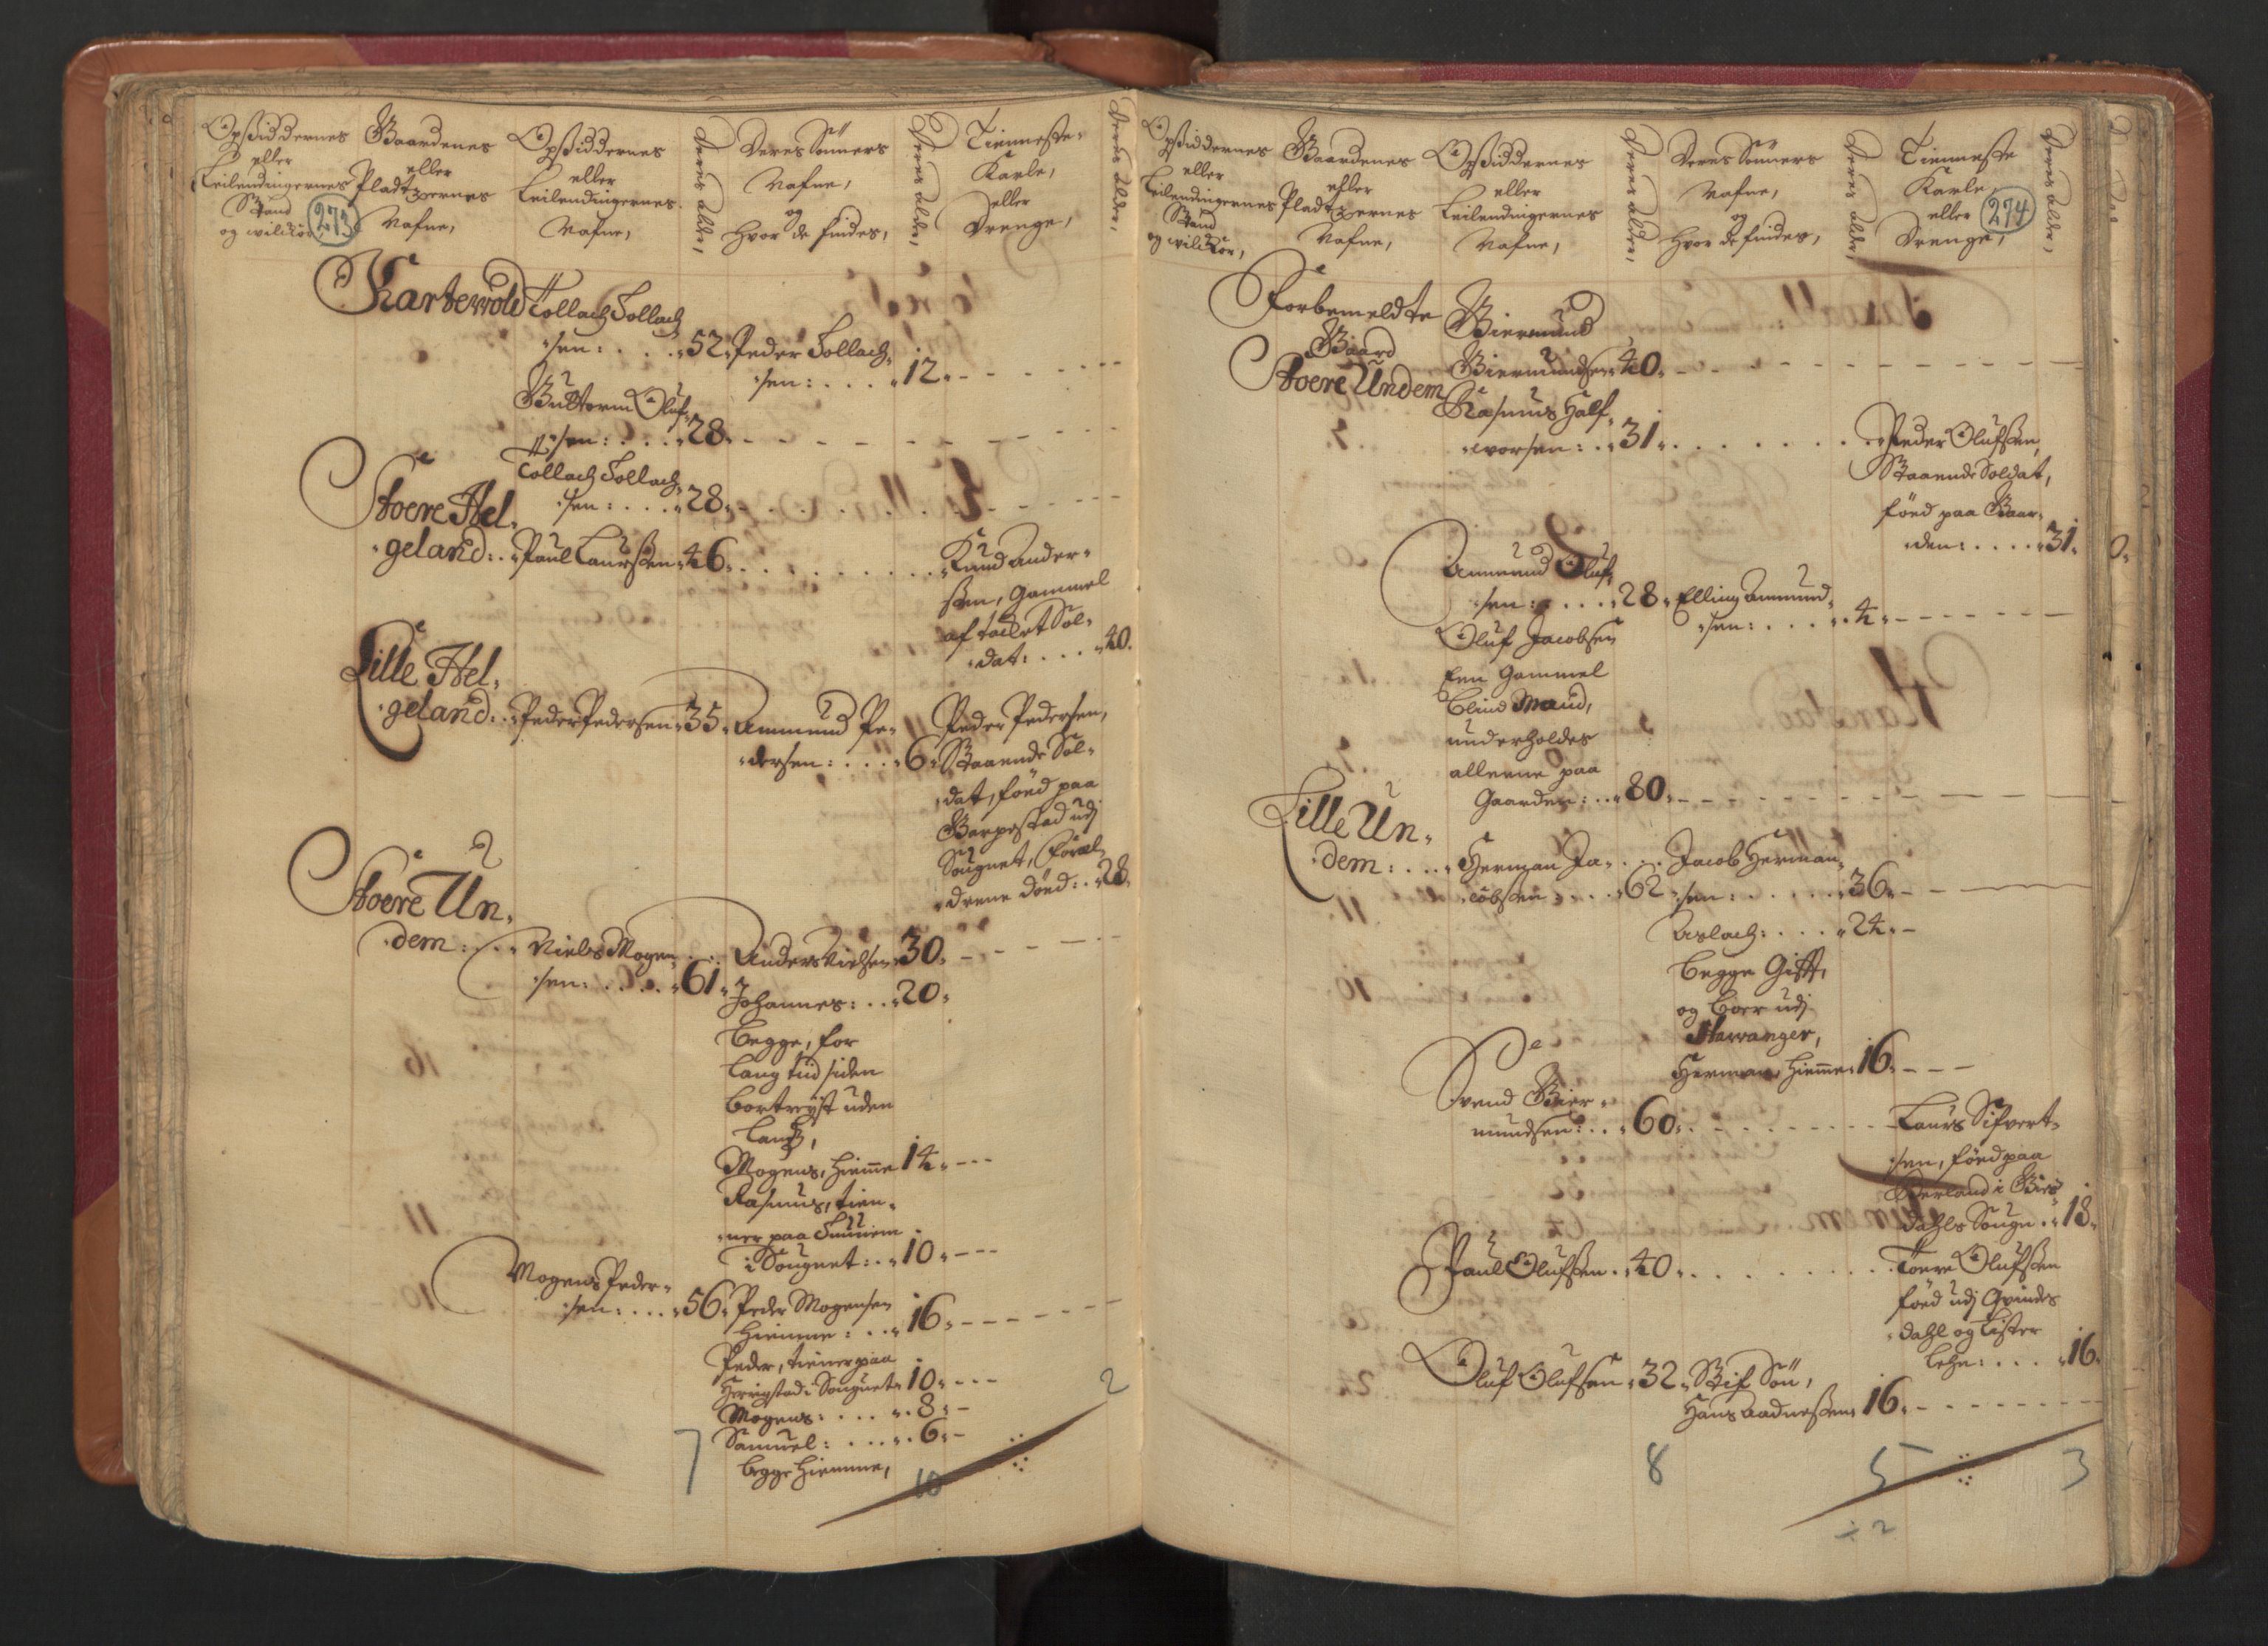 Opsiddernes
eller
Leilendingernes
Stand
og wilckor,
273
Gaardenes
eller
Pladtzernes
Nafne,
Opsiddernes
eller
Leilendingernes
Nafne,
Deres Alder,
Deres Sönners
Nafne,
og
Hvor de findes,
Deres Alder,
Tienneste
Karle,
eller
Drenge,
Deres Alder,
Tollach Tollach
sen: . . . 52. Peder Tollach
sen: . . . 12.
Guttorm Oluf
sen: . . . 28.
Tollach Tollach
sen: . . . 28.
Stoere Hel
geland: . Paul Laursen 46. Knud Ander
sen, Gammel
Sol
dat: . . . 40.
Lille Hel
geland: . Peder Pedersen 35. Ammund Pe
dersen: . . . 6.
Peder Pedersen,
Staaende Sol
dat, föed paa
udj
Sougnet, foræl
drene döed: . 28.
Stoere Un
dem: . . . Niels Mogen
sen: . . . 61.
Anders Nielsen 30.
Johannes: . . 20.
begge, for
lang tiid siden
bortreist uden
Landtz,
Mogens, hieme 14.
Rasmus, tien
ner paa
i Sougnet: . 10.
Mogens Peder
sen: . . . 56. Peder Mogensen
hiemme: . . 16.
Peder, tiener paa
i Sougnet 10.
Mogens: . . . 8.
Samuel: . . . 6.
begge hiemme,
7
10
2
Opsiddernes
eller
Leilendingernes
Stand
og wilckor,
Gaardenes
eller
Pladtzernes
Nafne,
Opsiddernes
eller
Leilendingernes
Nafne,
Deres Alder,
Deres Sönners
Nafne,
og
Hvor de findes,
Deres Alder,
Tienneste
Karle,
eller
Drenge,
274
Deres Alder,
Forbemeldte
Gaard
Stoere Undem
Giermund
Giermundsen 40.
Rasmus Half
worsen: . . 31.
Peder Olufsen,
Staaende Soldat,
föed paa Gaar
den: . . . . 31.
Ammund Oluf
sen: . . . 28. Elling Ammund
sen: . . . 4.
Oluf Jacobsen
Een Gammel
blind Mand,
underholdes
alleene paa
Gaarden: . . 80.
Lille Un
dem: . . . Herman Ja
cobsen . . . 62.
Jacob Herman
sen: . . . 36.
Aslach: . . . 24.
begge Gift,
og boer udj
Stavanger,
Herman, hieme 16.
Svend Gier
mundsen: . . 60.
Laurs Sifvert
sen, föed paa
i Gies
dahls Sougn . 18.
Paul Olufsen . 40.
Toere Olufsen
föed udj Qvindes
dahl og Lister
Lehn: . . . 16.
Oluf Olufsen 32. Stif Sön,
Hans Aadnesen 16.
8
5
3
÷ 2